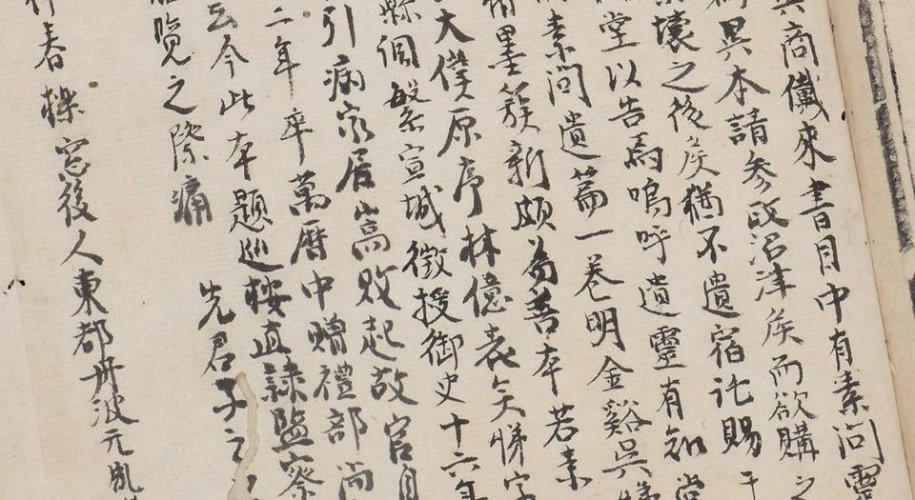 商儎來書目中有素问靈
異本請参政沼津侯而欲購之
壞之後侯猶不遺宿託賜于
堂以告焉嗚呼遺靈有知當
素问遺篇一巻明金谿吳悌
墨簇新頗爲善本若素
大僕原序林億表矣悌字
縣调繁宣城徵授御史十六年
引病家居嵩敗起故官自
二年卒萬曆中贈禮部尚
云今此本題巡按直隷監察
覽之際痛 先君子之
春櫟窓後人東都丹波元胤